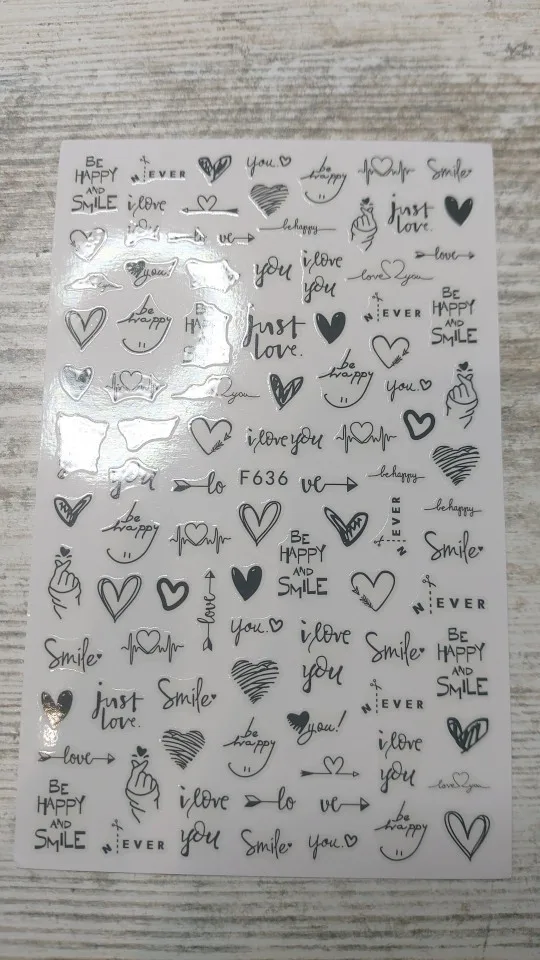 BE
HAPPY
AND
SMILE
NEVER
you.
be
happy
Smile
i love
just
love.
ve
behappy
love
you
i love
you
love you
you!
be
happy
BE
HAPPY
AND
SMILE
NEVER
just
love.
be
happy
you
you.
i love you
behappy
you
lo
F636
ve
behappy
be
happy
NEVER
BE
HAPPY
AND
SMILE
Smile
love
NEVER
Smile
you.
i love
you
Smile
BE
HAPPY
AND
SMILE
just
love.
Smile
NEVER
be
happy
you!
i love
you
love
love you
BE
HAPPY
AND
SMILE
NEVER
i love
you
lo
ve
Smile
you.
be
happy